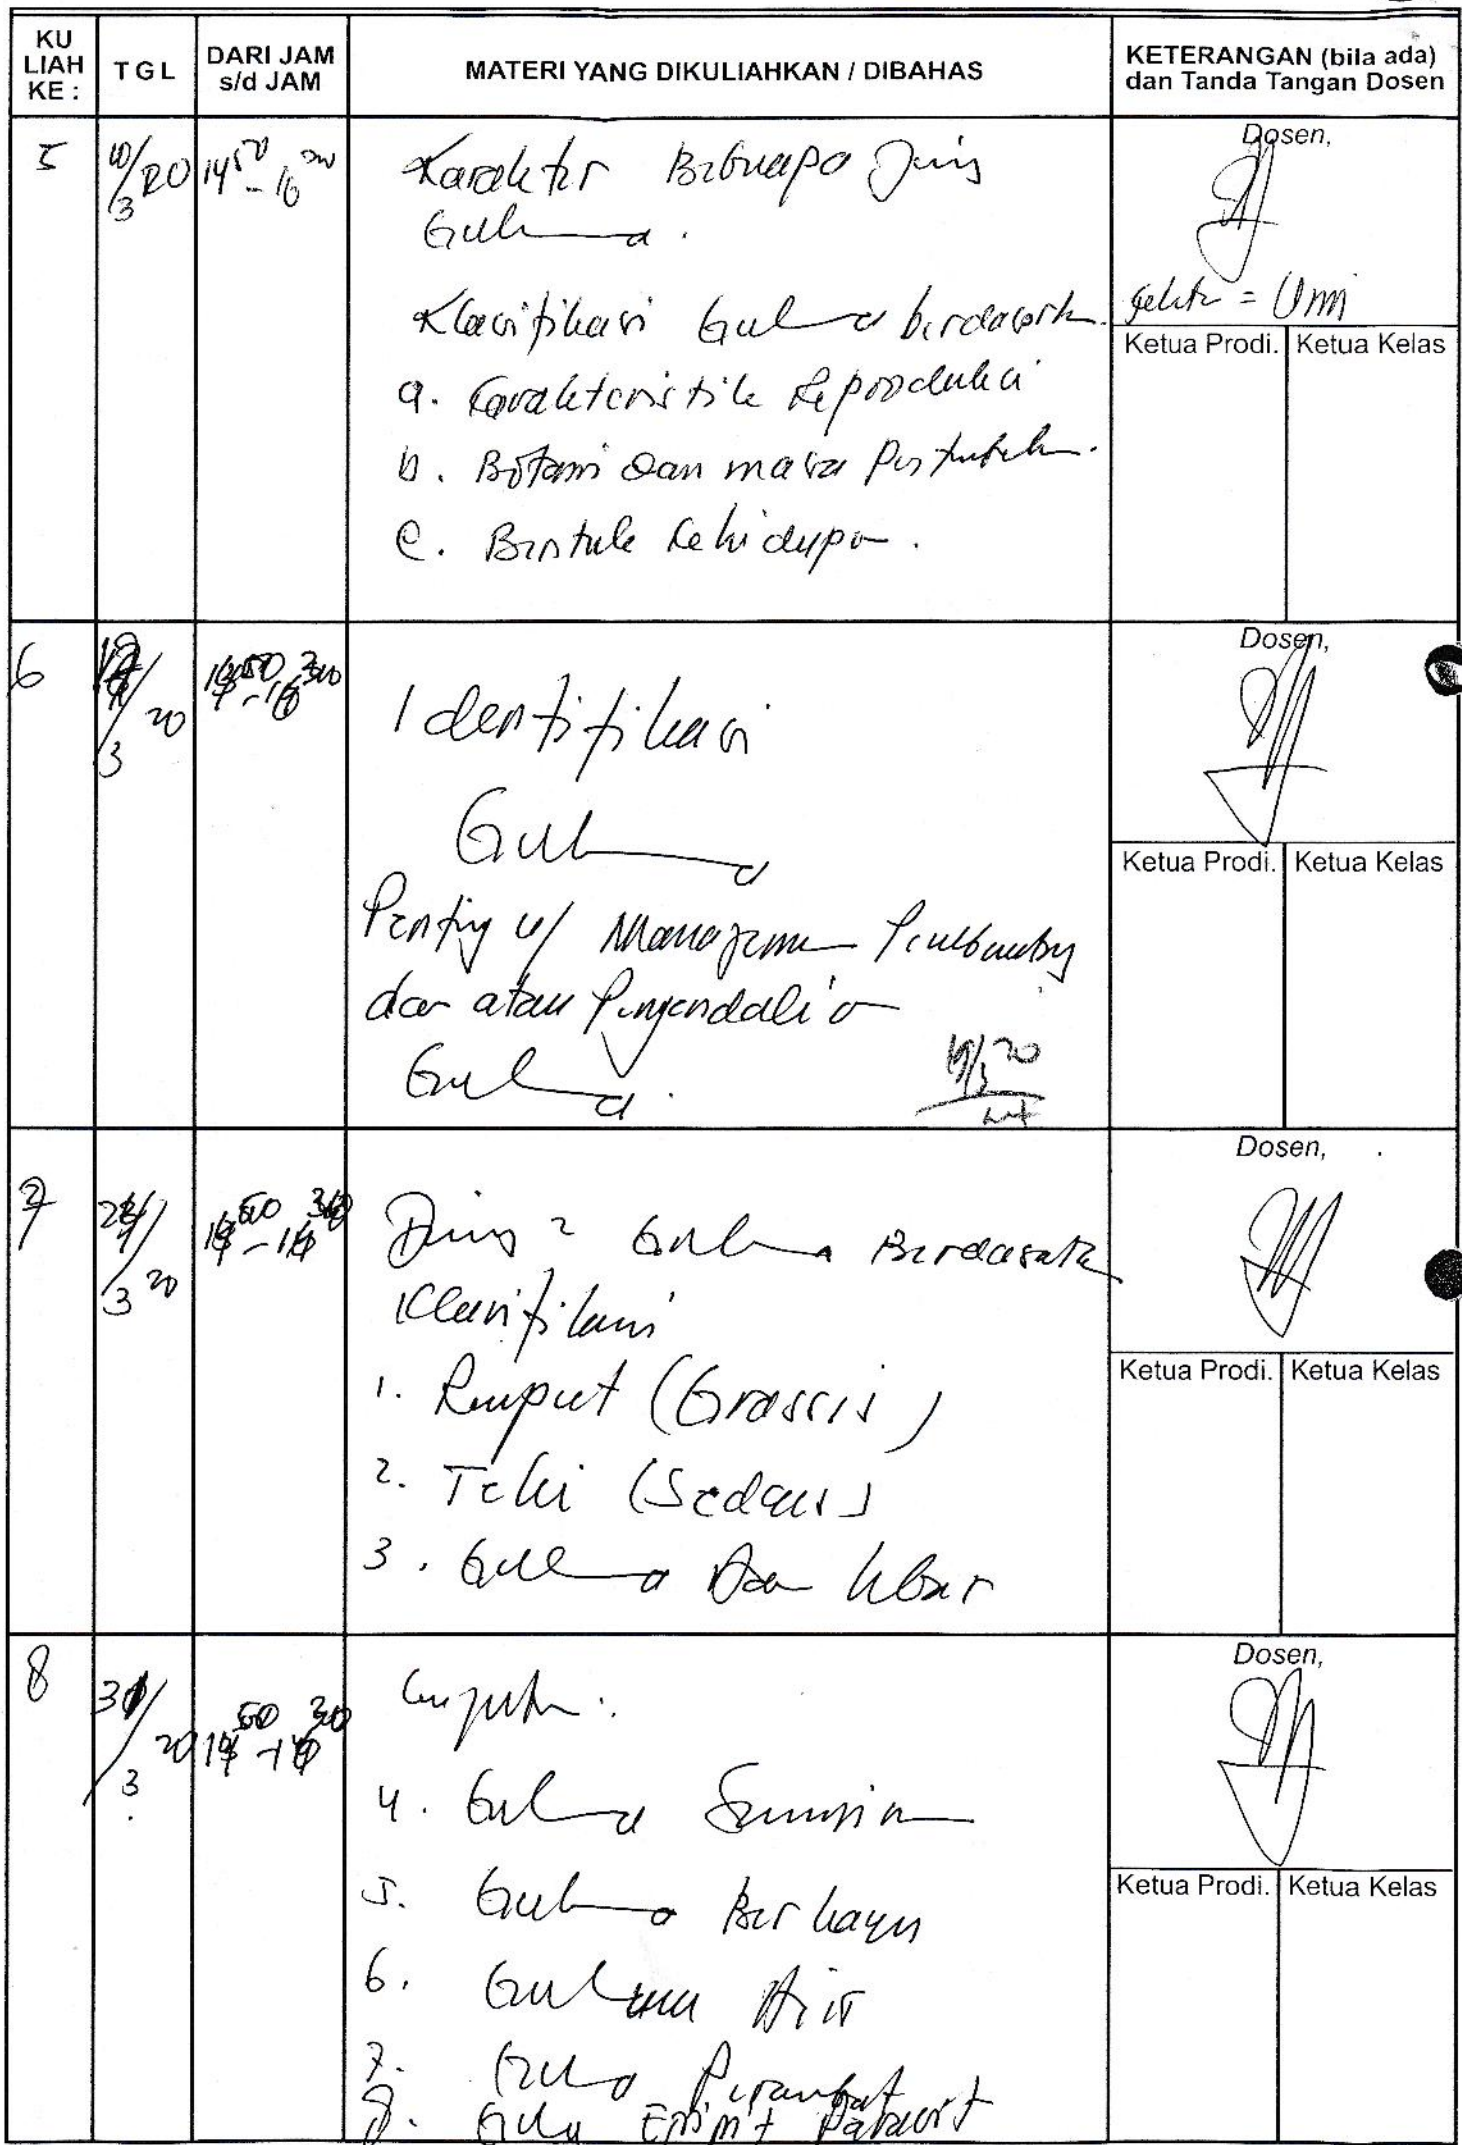 KU
LIAH
KE :
TGL
DARI JAM
s/d JAM
MATERI YANG DIKULIAHKAN / DIBAHAS
KETERANGAN (bila ada)
dan Tanda Tangan Dosen
5
10/3 20
14 50 - 16
Karakter Beberapa Jenis
Gulma.
Klasifikasi Gulma berdasarkan
a. Karakteristik Reproduksi
b. Botani dan masa Pertumbuhan.
c. Bentuk Kehidupan.
Dosen,
= Umi
Ketua Prodi.
Ketua Kelas
6
/3 20
Identifikasi
Gulma
Penting u/ Manajemen
dan atau Pengendalian
Gulma.
Dosen,
Ketua Prodi.
Ketua Kelas
7
24/3 20
Jenis 2 Gulma Berdasarkan
Klasifikasi
1. Rumput (Grasses)
2. Teki (Sedges)
3. Gulma Daun lebar
Dosen,
Ketua Prodi.
Ketua Kelas
8
31/3 20
Lanjutan :
4. Gulma Semusim
5. Gulma Berkayu
6. Gulma Air
7. Gulma Perambat
8. Gulma Epifit Parasit
Dosen,
Ketua Prodi.
Ketua Kelas